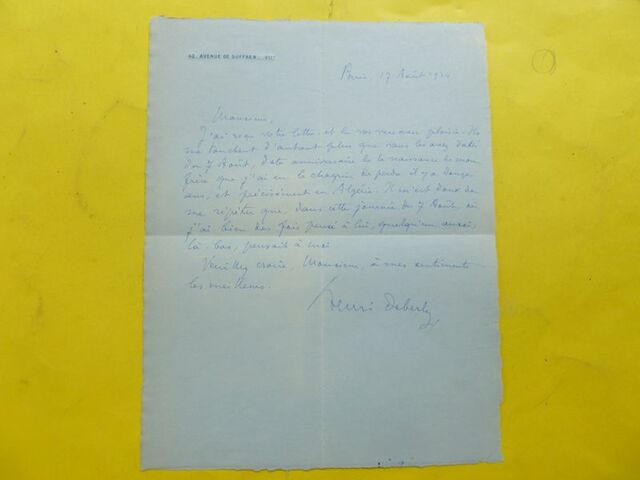 40, AVENUE DE SUFFREN. VIIᵉ
Paris, 17 Août 1934
Monsieur,
J'ai reçu votre lettre et le vos
me touchent d'autant plus que vous les avez datés
du 7 Août, date anniversaire de la naissance de mon
frère que j'ai eu le chagrin de perdre il y a douze
ans, et précisément en Algérie. Il m'est doux de
me répéter que, dans cette journée du 7 Août, où
j'ai bien des fois pensé à lui, quelqu'un aussi,
là-bas, pensait à moi
Veuillez croire, Monsieur, à mes sentiments
les meilleurs.
Henri Deberly